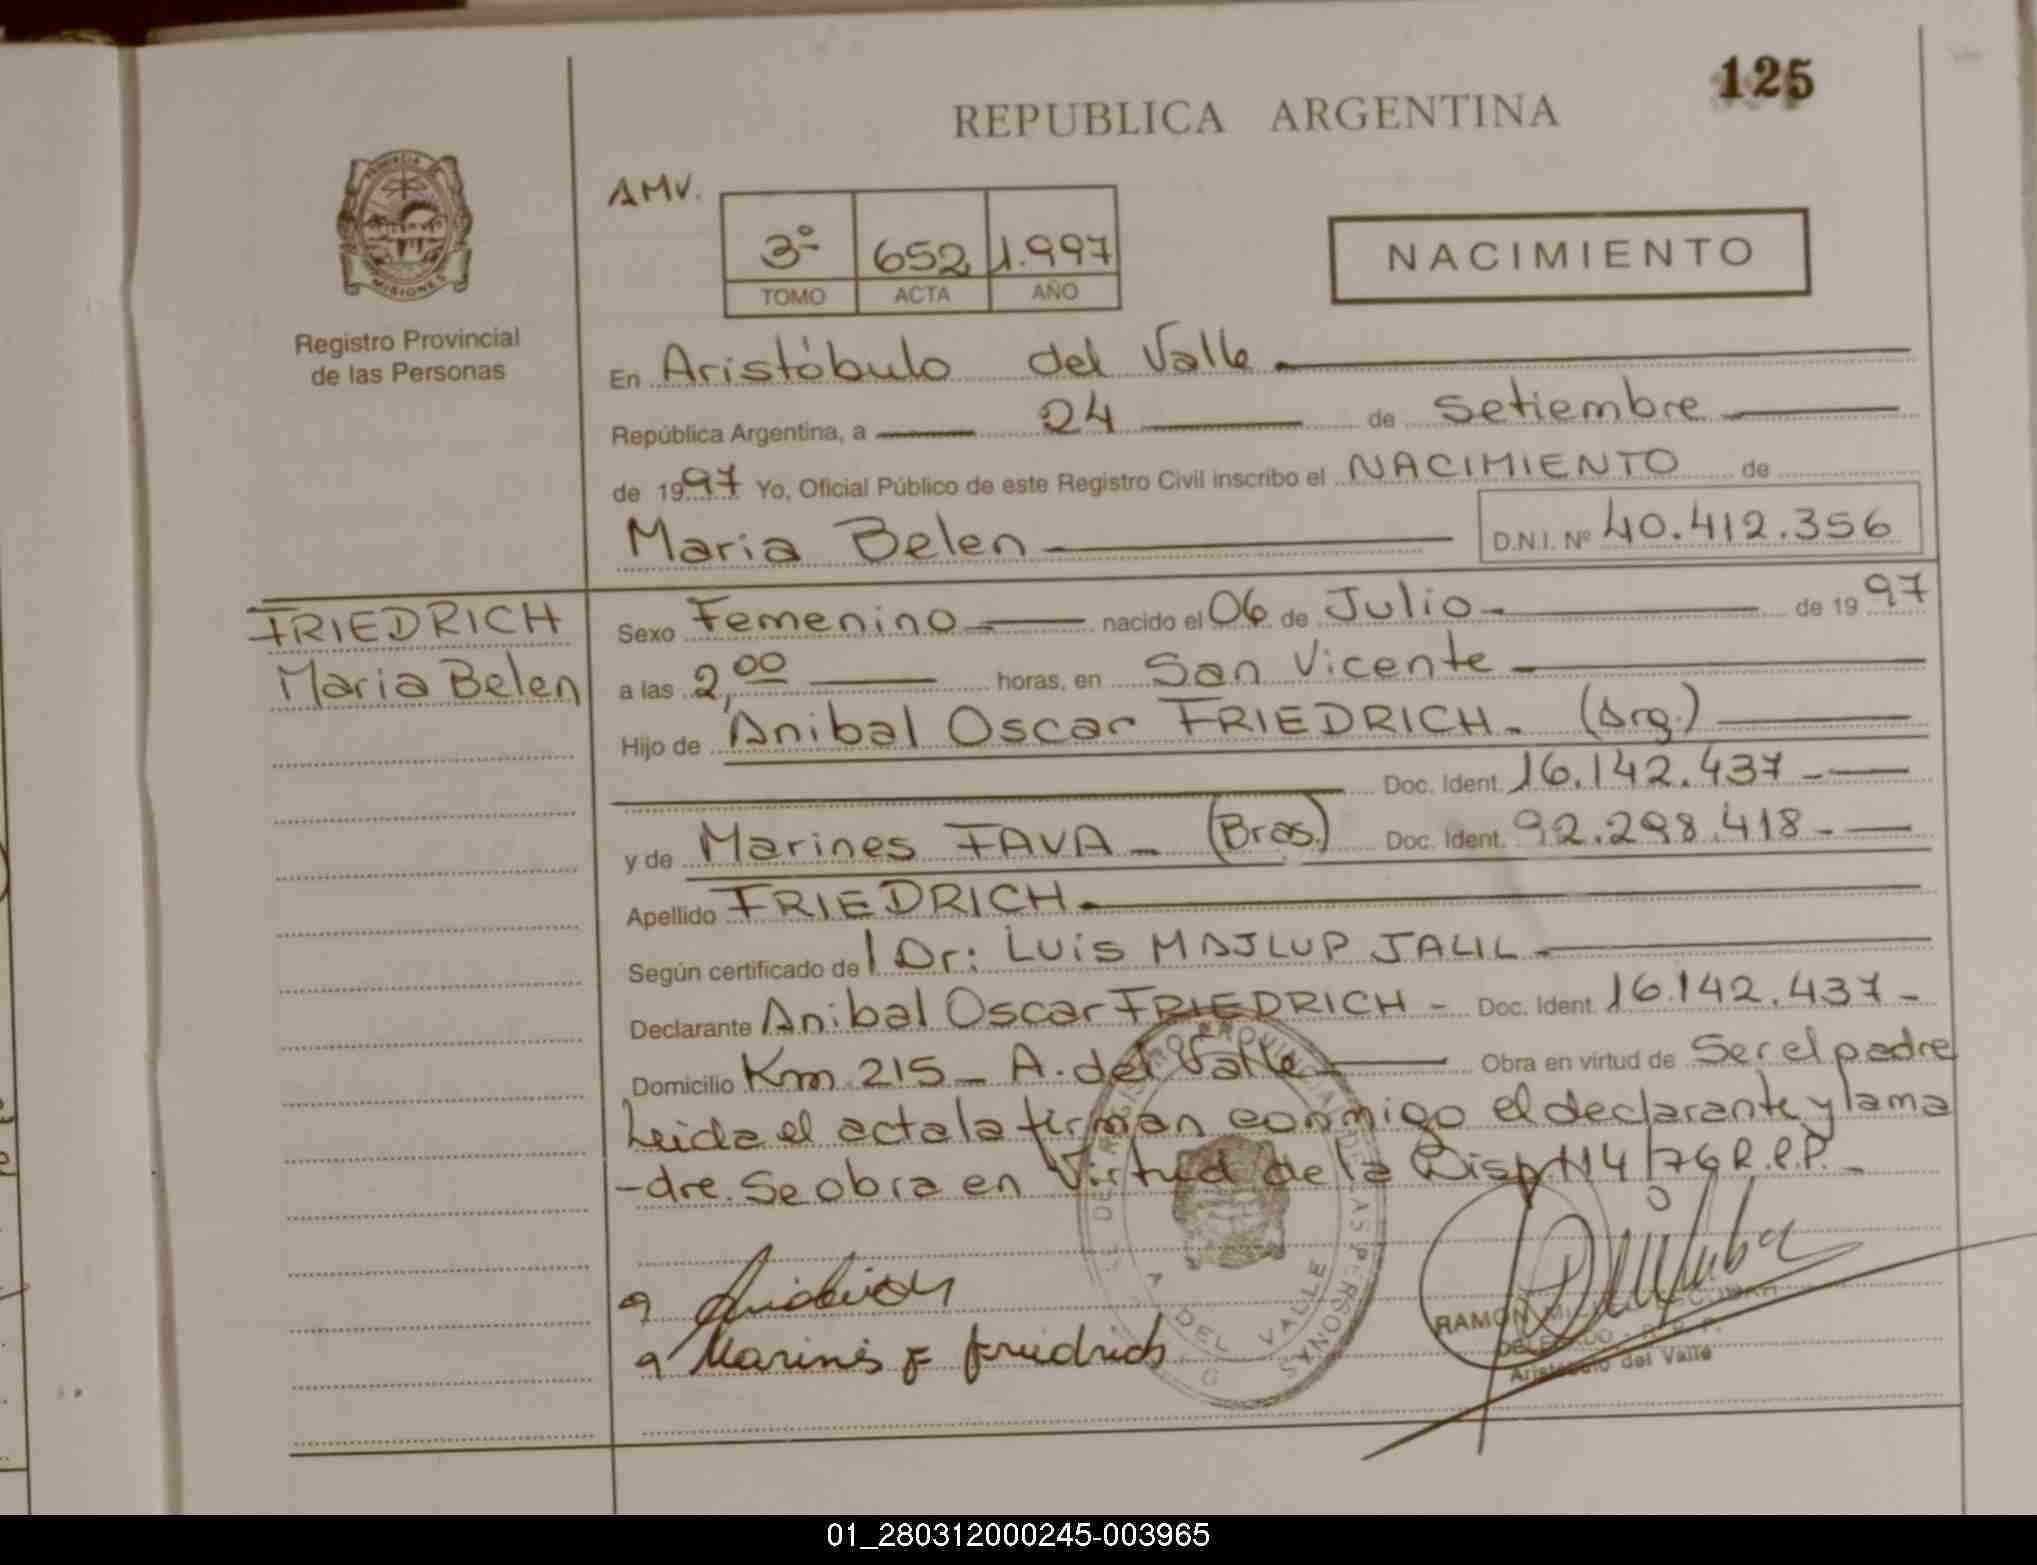 125
REPUBLICA ARGENTINA
AMV.
3º 652 1.997
TOMO ACTA AÑO
NACIMIENTO
MISIONES
Registro Provincial
de las Personas
En Aristóbulo del Valle
República Argentina, a 24 de Setiembre
de 1997 Yo, Oficial Público de este Registro Civil inscribo el NACIMIENTO de
Maria Belen D.N.I. Nº 40.412.356
FRIEDRICH
Maria Belen
Sexo Femenino nacido el 06 de Julio de 1997
a las 2,00 horas, en San Vicente
Hijo de Anibal Oscar FRIEDRICH. (Arg.)
Doc. Ident. 16.142.437
y de Marines FAVA (Bras.) Doc. Ident. 92.298.418
Apellido FRIEDRICH
Según certificado de l Dr: Luis MAJLUP JALIL
Declarante Anibal Oscar FRIEDRICH - Doc. Ident. 16.142.437
Domicilio Km 215 - A. del Valle Obra en virtud de Ser el padre
Leida el acta la firman conmigo el declarante y la ma
-dre. Se obra en Virtud de la Disp. 114/76 R.P.P.
Marines F Friedrich
A DEL VALLE
RAMON
Aristobulo del Valle
01_280312000245-003965